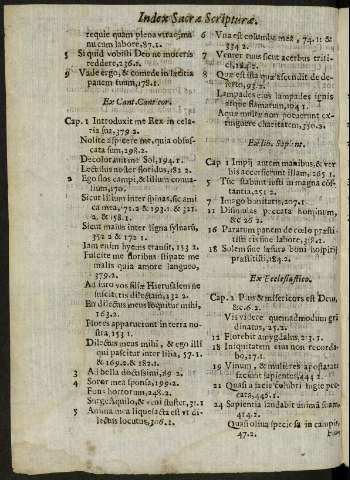 Index Sacræ Scripturæ.
requie quàm plena vtraq; ma
nu cum labore, 87.1.
5 Si quid vobisti Deo ne moreris
reddere, 236.1.
9 Vade ergo, & comede in lætitia
panem tuum, 178.1.
Ex Cant. Canticor.
Cap. 1 Introduxit me Rex in cela-
ria sua, 379.2.
Nolite aspicere me, quia obfus-
cata sum, 298.2.
Decolorauit me Sol, 194.1.
Lectulus noster floridus, 182.2.
2 Ego flos campi, & lilium conua-
lium, 170.
Sicut lilium inter spinas, sic ami
ca mea, 71.2 & 193.1. & 321.
2. & 158.1.
Sicut malus inter ligna syluarū,
352.2 & 172.1.
Iam enim hyems transijt, 153.2.
Fulcite me floribus stipate me
malis quia amore langueo,
379.2.
Adiuro vos filiæ Hierusalem ne
suscitetis dilectam, 132.2.
En dilectus meus loquitur mihi,
163.2.
Flores apparuerunt in terra no-
stra, 153.1.
Dilectus meus mihi, & ego illi
qui pascitur inter lilia, 57.1.
& 169.2. & 182.1.
3 Ad bella doctissimi, 69.2.
4 Soror mea sponsa, 199.2.
Fons hortorum, 248.2.
Surge Aquilo, & veni Auster, 31.1
5 Anima mea liquefacta est vt di-
lectus locutus, 306.1.
6 Vna est columba mea, 74.1. &
334.2.
7 Venter tuus sicut aceruus tritici-
ci, 184.2.
8 Quæ est ista quæ ascendit de de-
serto, 93.2.
Lampades eius lampades ignis
atque flamarum, 104.1.
Aquæ multæ non potuerunt ex-
tinguere charitatem, 350.2.
Ex lib. Sapient.
Cap 1 Impij autem manibus, & ver
bis accersierunt illam, 265.1.
5 Tūc stabunt iusti in magna cōs-
tantia, 251.2.
7 Imago bonitatis, 207.1.
11 Dissimulas peccata hominum,
& 26.2.
16 Paratum panem de cœlo præsti
tisti eis sine labore, 359.2.
18 Solem sine læsura boni hospitij
præstitisti, 184.2.
Ex Ecclesiastico.
Cap. 2 Pius & misericors est Deus,
&c. 6.2.
Vis videre quemadmodum gra
dinatus, 25.2.
12 Florebit amygdalus, 213.1.
18 Iniquitatem eius non recorda-
bo, 17.1.
19 Vinum, & mulieres apostatare
faciunt sapientes, 444.2.
21 Quasi à facie colubri fuge pec-
cata, 446.1.
24 Sapientia laudabit animā suam,
414.2.
Quasi oliua speciosa in campis,
47.2.